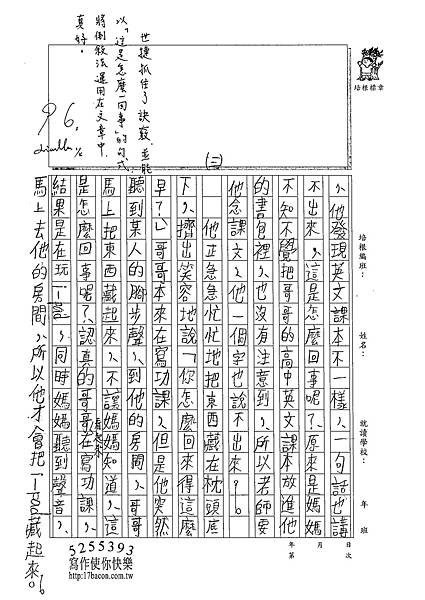 世捷抓住了訣竅，並能
以「這是怎麼一回事」的句式，
將倒敘法運用在文章中，
真好。
96.
培根標章
(三)
培根編班：
姓名：
就讀學校：
年 班
年 月 日
第 次
，他發現英文課本不一樣，一句話也講
不出來，這是怎麼回事呢？原來是媽媽
不知不覺把哥哥的高中英文課本放進他
的書包裡，也沒有注意到，所以老師要
他念課文，他一個字也說不出來。
他正急急忙忙地把東西藏在枕頭底
下，擠出笑容地說「你怎麼回來得這麼
早？」哥哥本來在寫功課，但是他突然
聽到某人的腳步聲，到他的房間，哥哥
馬上把東西藏起來，不讓媽媽知道，這
是怎麼回事呢？認真的哥哥在寫功課，
看起來
結果是在玩iPad，同時媽媽聽到聲音，
馬上去他的房間，所以他才會把iPad藏起來。
5255393
寫作使你快樂
http://17bacon.com.tw